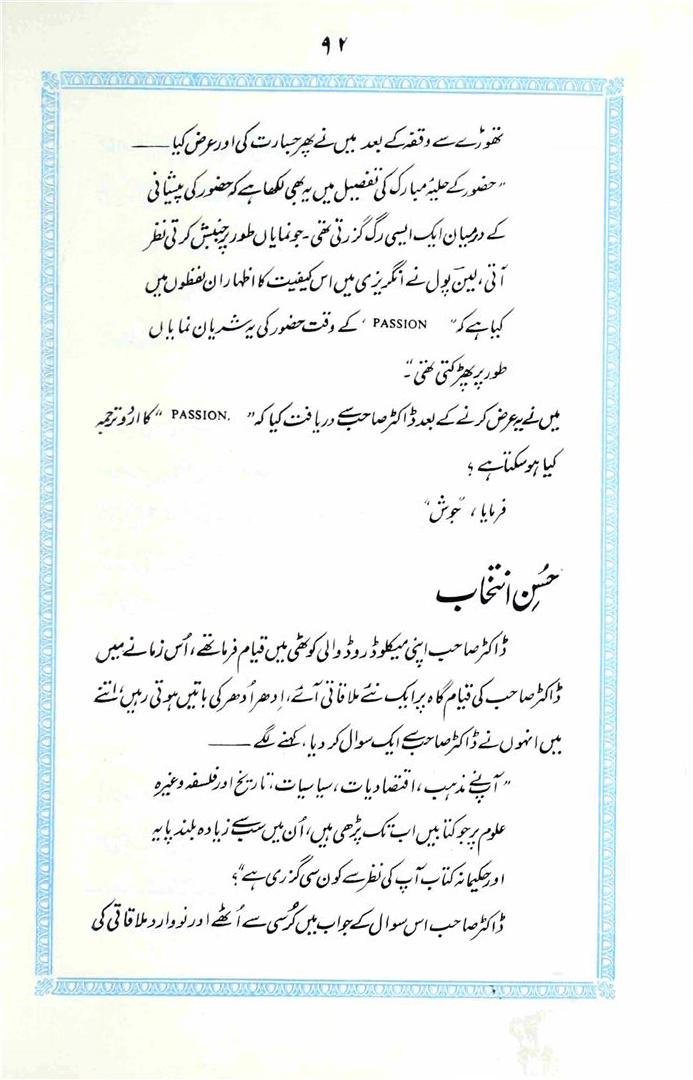 ۹۲
تھوڑے سے وقفہ کے بعد میں نے پھر جسارت کی اور عرض کیا ——
”حضور کے حلیۂ مبارک کی تفصیل میں یہ بھی لکھا ہے کہ حضور کی پیشانی
کے درمیان ایک ایسی رگ گزرتی تھی۔ جو نمایاں طور پر جنبش کرتی نظر
آتی، لین پول نے انگریزی میں اس کیفیت کا اظہار ان لفظوں میں
کیا ہے کہ ” PASSION ‘ کے وقت حضور کی یہ شریان نمایاں
طور پر پھڑکتی تھی۔“
میں نے یہ عرض کرنے کے بعد ڈاکٹر صاحب سے دریافت کیا کہ ” PASSION. “ کا اردو ترجمہ
کیا ہو سکتا ہے ؟
فرمایا، ”جوش“
حُسنِ انتخاب
ڈاکٹر صاحب اپنی میکلوڈ روڈ والی کوٹھی میں قیام فرما تھے، اُس زمانے میں
ڈاکٹر صاحب کی قیام گاہ پر ایک نئے ملاقاتی آئے، اِدھر اُدھر کی باتیں ہوتی رہیں، اتنے
میں انہوں نے ڈاکٹر صاحب سے ایک سوال کر دیا، کہنے لگے ——
”آپ نے مذہب، اقتصادیات، سیاسیات، تاریخ اور فلسفہ وغیرہ
علوم پر جو کتابیں اب تک پڑھی ہیں، اُن میں سب سے زیادہ بلند پایہ
اور حکیمانہ کتاب آپ کی نظر سے کون سی گزری ہے“؟
ڈاکٹر صاحب اس سوال کے جواب میں کُرسی سے اُٹھے اور نووارد ملاقاتی کی